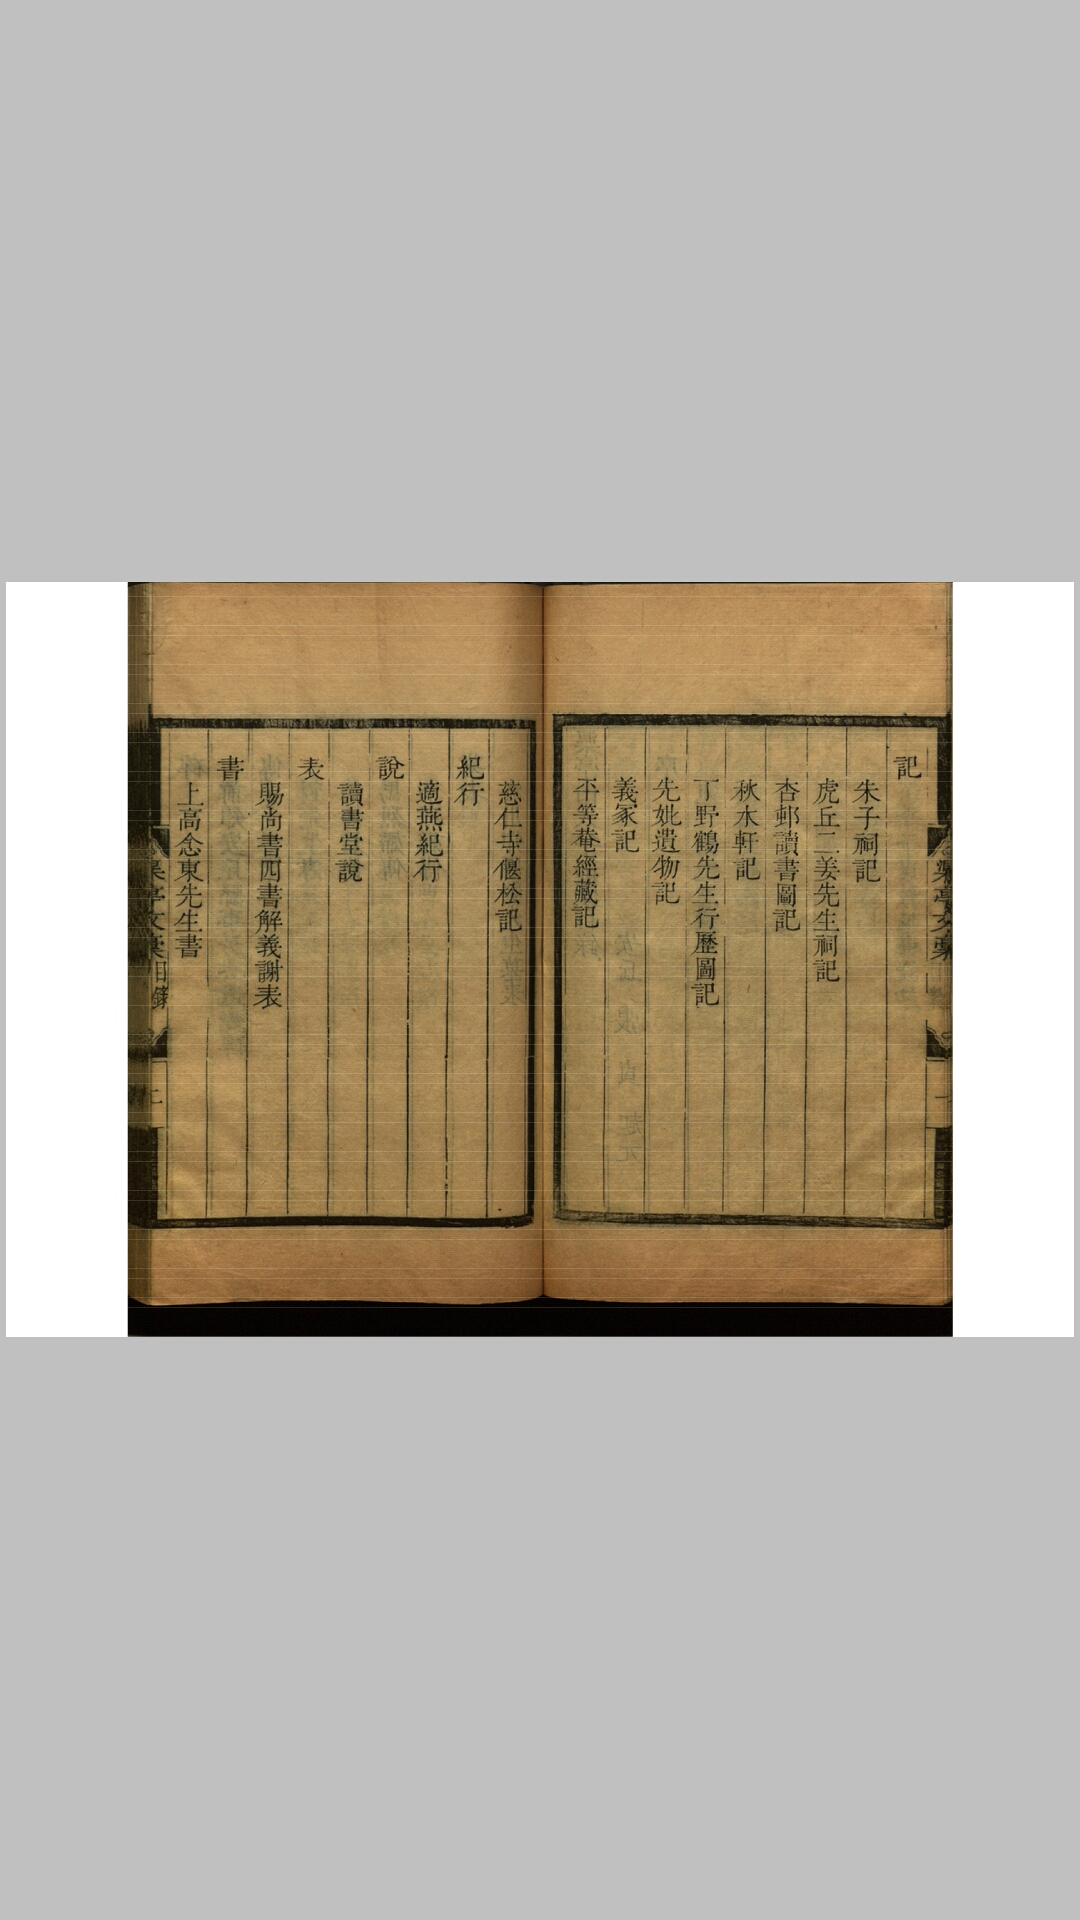 記
朱子祠記
虎丘二姜先生祠記
杏邨讀書圖記
秋水軒記
丁野鶴先生行歷圖記
先妣遺物記
義冢記
平等菴經藏記
慈仁寺偃松記
紀行
適燕紀行
說
讀書堂說
表
賜尚書四書解義謝表
書
上高念東先生書